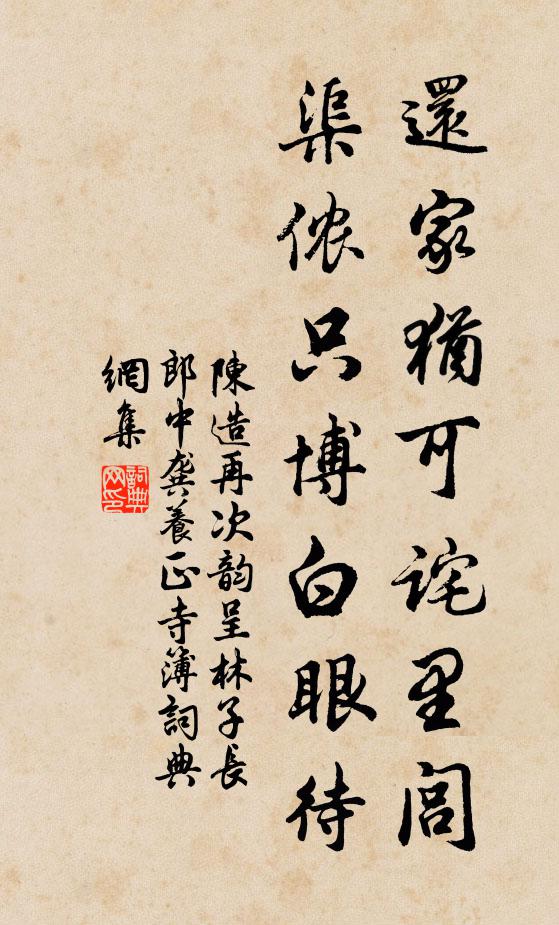 還家猶可詫里閭
渠侬只博白眼待
陳造再次韵呈林子長
郎中龚養正寺簿詞典
網集
詞典網印